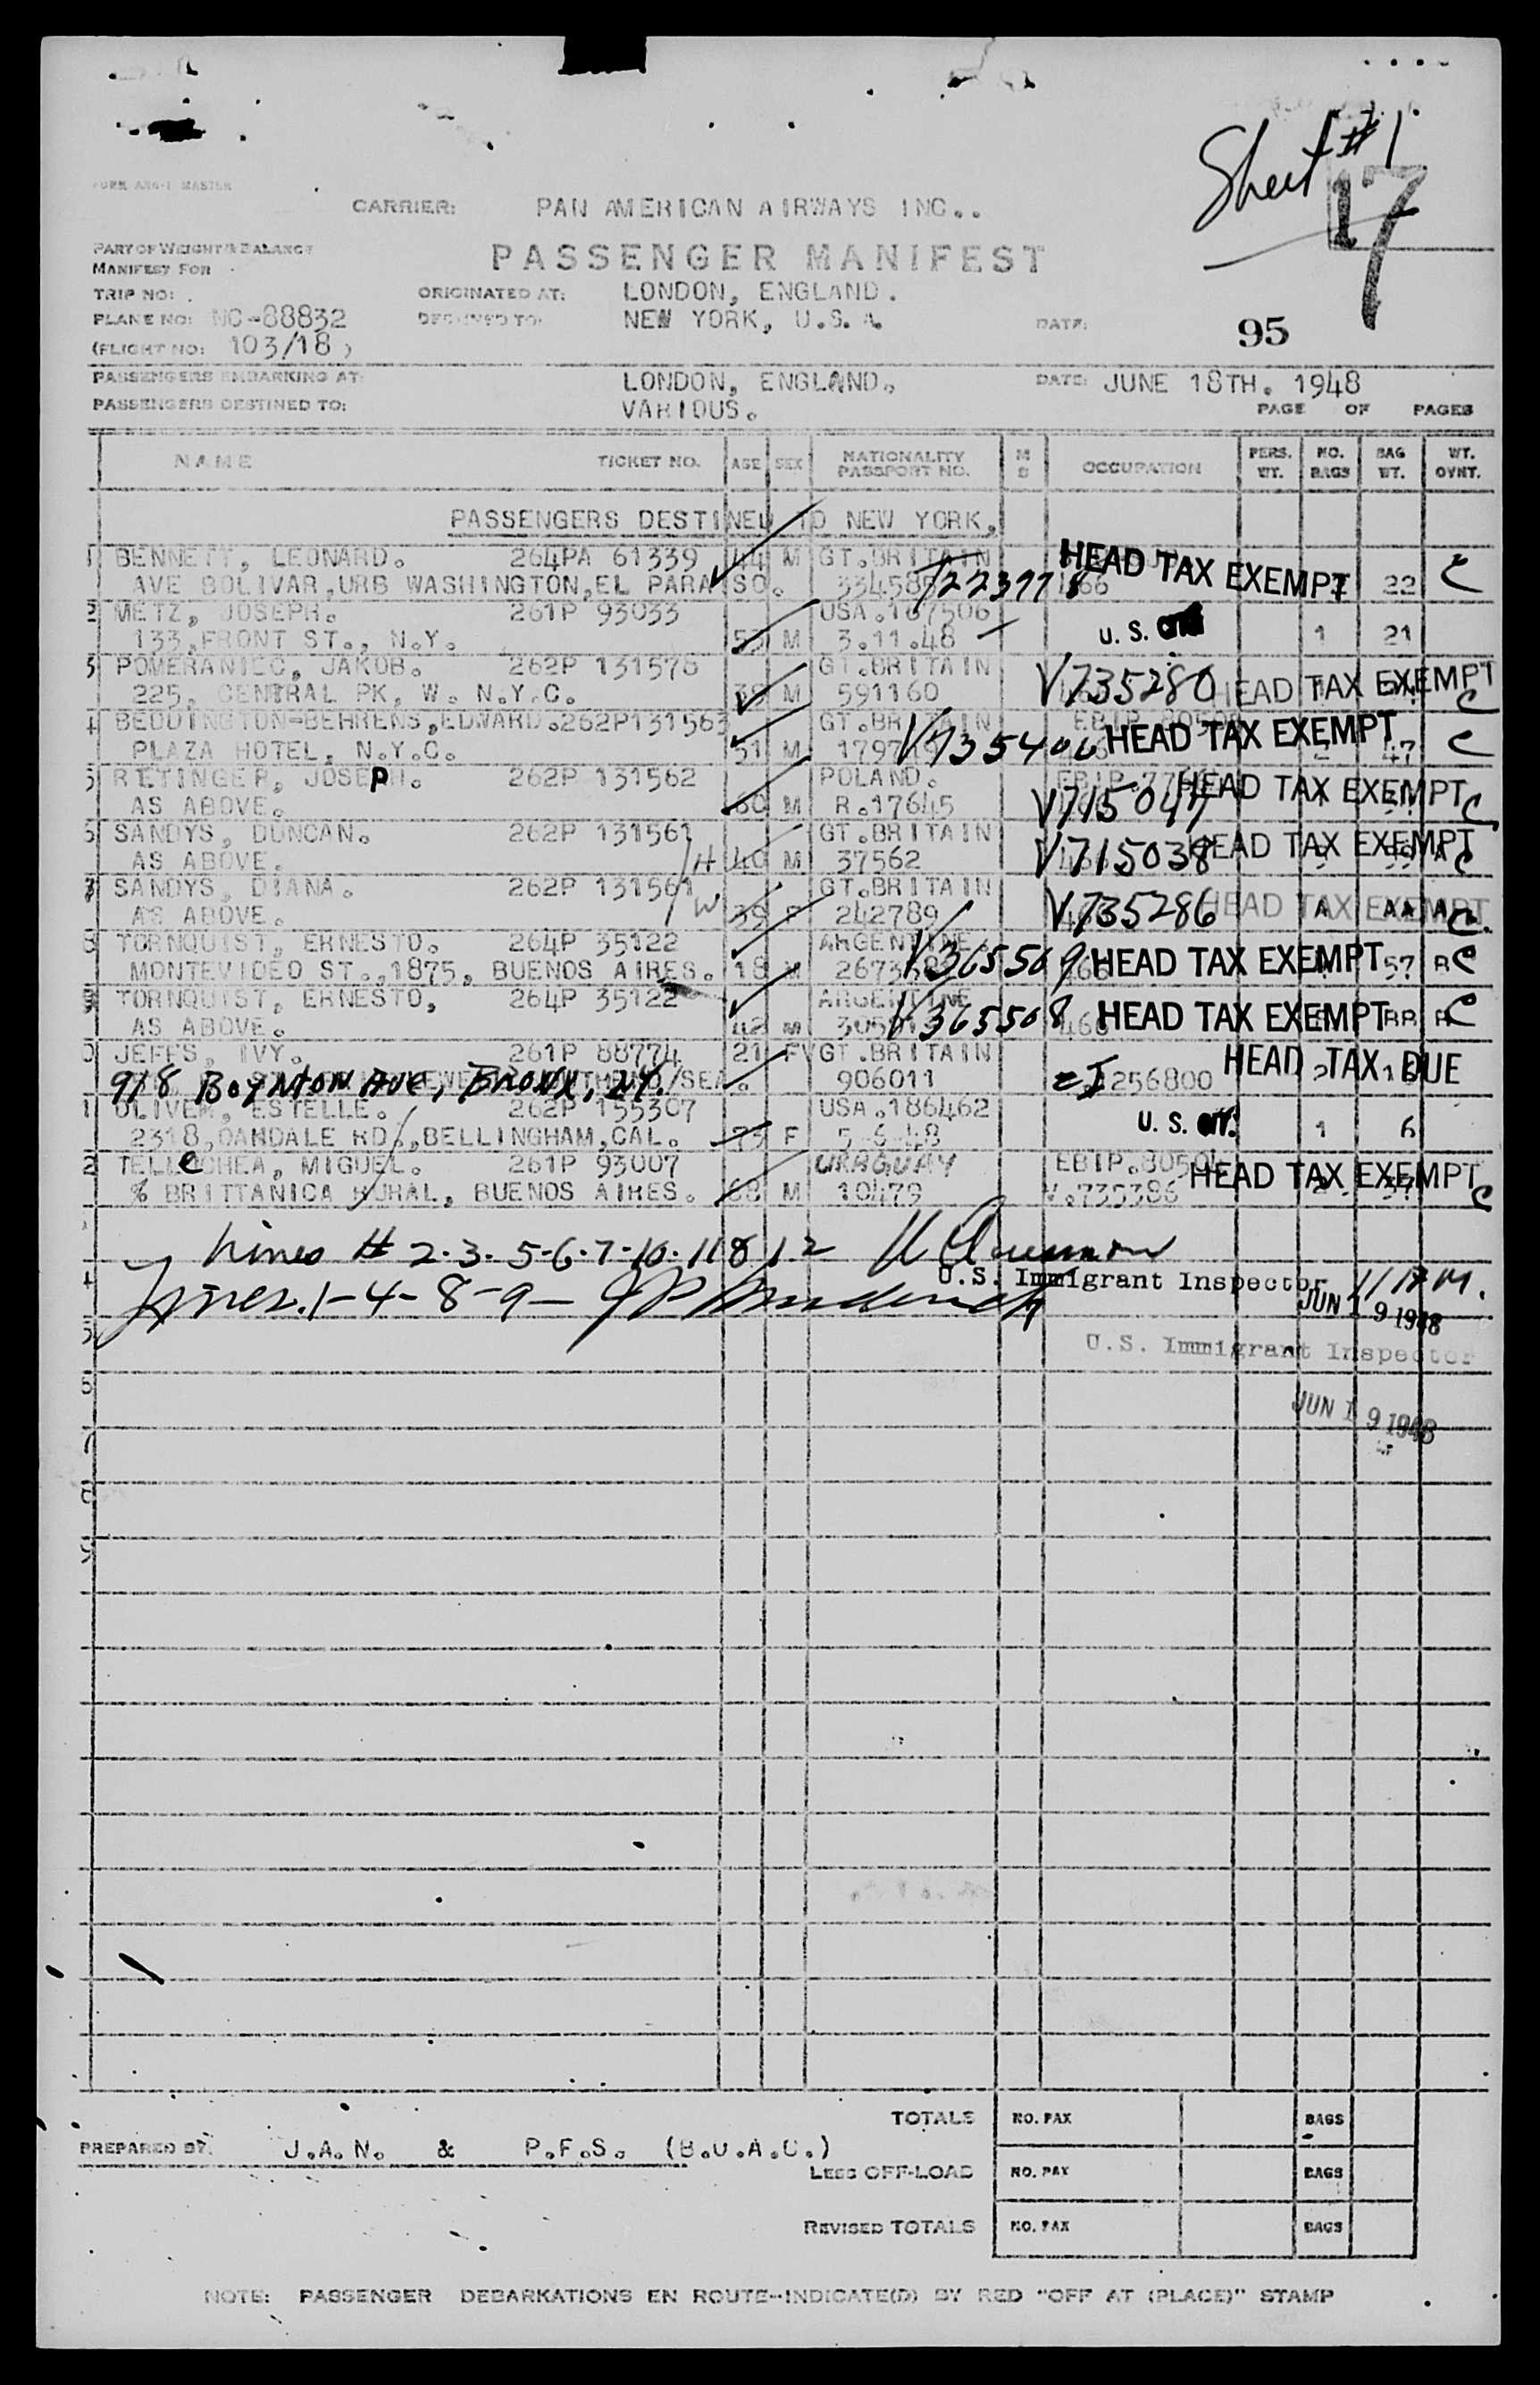 Sheet #1
17
FORM ANG-1 MASTER
CARRIER: PAN AMERICAN AIRWAYS INC..
PART OF WEIGHT & BALANCE
PASSENGER MANIFEST
MANIFEST FOR
TRIP NO: ORIGINATED AT: LONDON, ENGLAND.
PLANE NO: NC-88832 DESTINED TO: NEW YORK, U.S.A. DATE: 95
(FLIGHT NO: 103/18)
PASSENGERS EMBARKING AT: LONDON, ENGLAND. DATE: JUNE 18TH. 1948
PASSENGERS DESTINED TO: VARIOUS. PAGE OF PAGES
NAME TICKET NO. AGE SEX NATIONALITY PASSPORT NO. M S OCCUPATION PERS. WT. NO. BAGS BAG WT. WT. OVNT.
PASSENGERS DESTINED TO NEW YORK.
1 BENNETT, LEONARD. 264PA 61339 44 M GT.BRITAIN HEAD TAX EXEMPT C
AVE BOLIVAR,URB WASHINGTON,EL PARAISO. T223978 22
2 METZ, JOSEPH. 261P 93033 USA.167506
133,FRONT ST., N.Y. 53 M 3.11.48 U.S. 1 21
3 POMERANIEC, JAKOB. 262P 131576 GT.BRITAIN V735280 HEAD TAX EXEMPT
225, CENTRAL PK, W. N.Y.C. 38 M 591160 C
4 BEDDINGTON-BEHRENS,EDWARD.262P131563 GT.BRITAIN
PLAZA HOTEL, N.Y.C. 51 M V735400 HEAD TAX EXEMPT 47 C
5 RETINGER, JOSEPH. 262P 131562 POLAND. HEAD TAX EXEMPT
AS ABOVE. 60 M R.17645 V715047 C
6 SANDYS, DUNCAN. 262P 131561 GT.BRITAIN
AS ABOVE. H 40 M 37562 V715038 HEAD TAX EXEMPT C
7 SANDYS, DIANA. 262P 131561 GT.BRITAIN
AS ABOVE. W 39 F 242789 V735286 HEAD TAX EXEMPT C.
8 TORNQUIST, ERNESTO. 264P 35122 ARGENTINE
MONTEVIDEO ST.,1875, BUENOS AIRES. 18 M V365569 HEAD TAX EXEMPT 57 B C
9 TORNQUIST, ERNESTO, 264P 35122 ARGENTINE
AS ABOVE. 42 M V365568 HEAD TAX EXEMPT BB B C
10 JEFFS, IVY. 261P 88774 21 F GT.BRITAIN HEAD TAX DUE
918 BOYNTON AVE, BRONX, NY. /SEA. 906011 I256800
11 OLIVER, ESTELLE. 262P 155307 USA.186462
2318,OAKDALE RD.,BELLINGHAM,CAL. 75 F 5-6-48 U.S. 1 6
12 TELLECHEA, MIGUEL. 261P 93007 URAGUAY EBIP.80504 HEAD TAX EXEMPT
% BRITTANICA RURAL, BUENOS AIRES. 68 M 10479 V.735386 C
Lines # 2-3-5-6-7-10-11 & 12
U.S. Immigrant Inspector
Lines. 1-4-8-9-
JUN 19 1948
U.S. Immigrant Inspector
JUN 19 1948
TOTALS NO. PAX BAGS
PREPARED BY: J.A.N. & P.F.S. (B.O.A.C.)
LESS OFF-LOAD NO. PAX BAGS
REVISED TOTALS NO. PAX BAGS
NOTE: PASSENGER DEBARKATIONS EN ROUTE--INDICATE(D) BY RED "OFF AT (PLACE)" STAMP